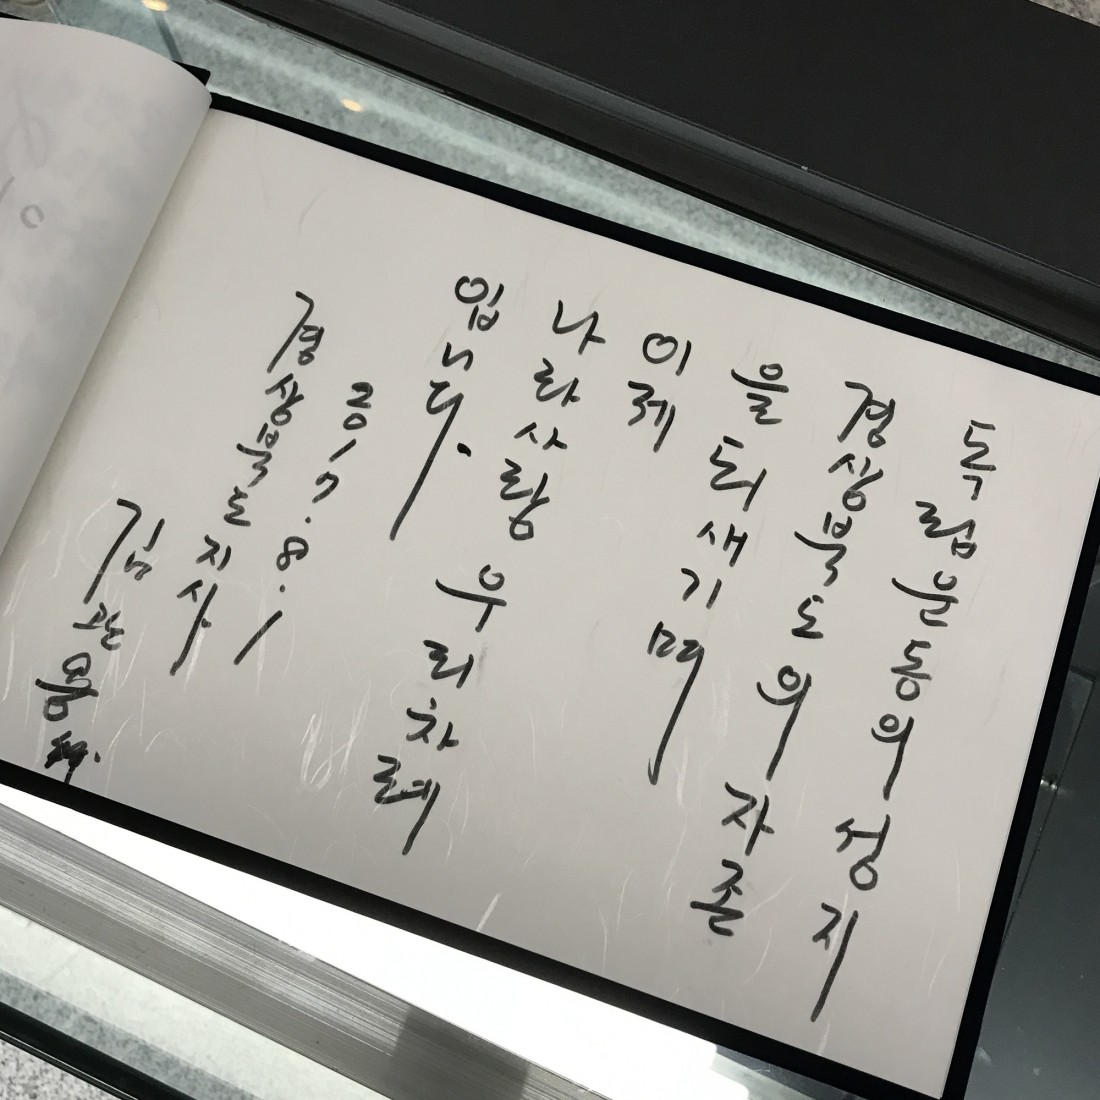 독립운동의 성지
경상북도의 자존
을 되새기며
이제
나라사랑 우리차례
입니다.
2017. 8. 1
경상북도지사
김관용